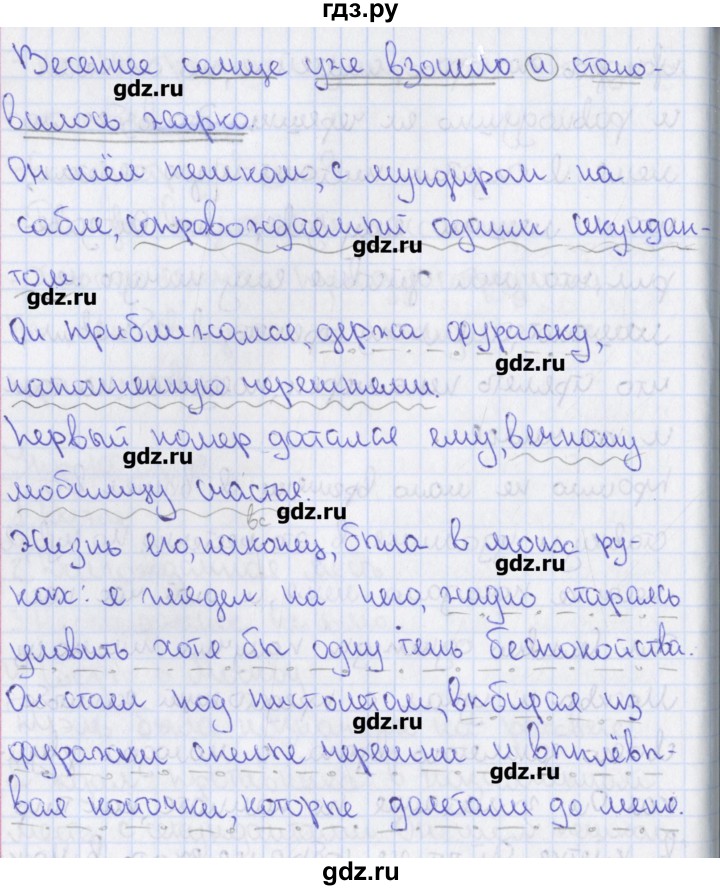 гдз.ру
Весеннее солнце уже взошло и стано-
gdz.ru
вилось жарко.
Он шёл пешком, с мундиром на
сабле, сопровождаемый одним секундан-
gdz.ru
том.
gdz.ru
Он приближался, держа фуражку,
gdz.ru
наполненную черешнями.
Первый номер достался ему, вечному
gdz.ru
любимцу счастья.
gdz.ru
вс
Жизнь его, наконец, была в моих ру-
gdz.ru
ках: я глядел на него, жадно стараясь
уловить хотя бы одну тень беспокойства.
Он стоял под пистолетом, выбирая из
gdz.ru
фуражки спелые черешни и выплёвы-
gdz.ru
вая косточки, которые долетали до меня.
gdz.ru